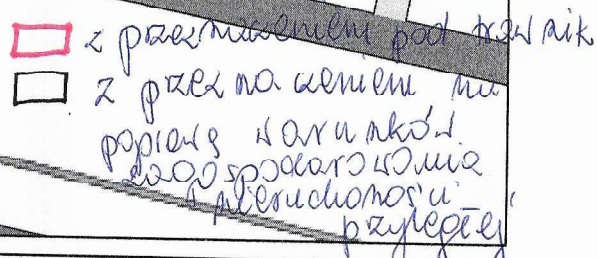 z przeznaczeniem pod trawnik
z przeznaczeniem na
poprawę warunków
zagospodarowania
nieruchomości
przyległej